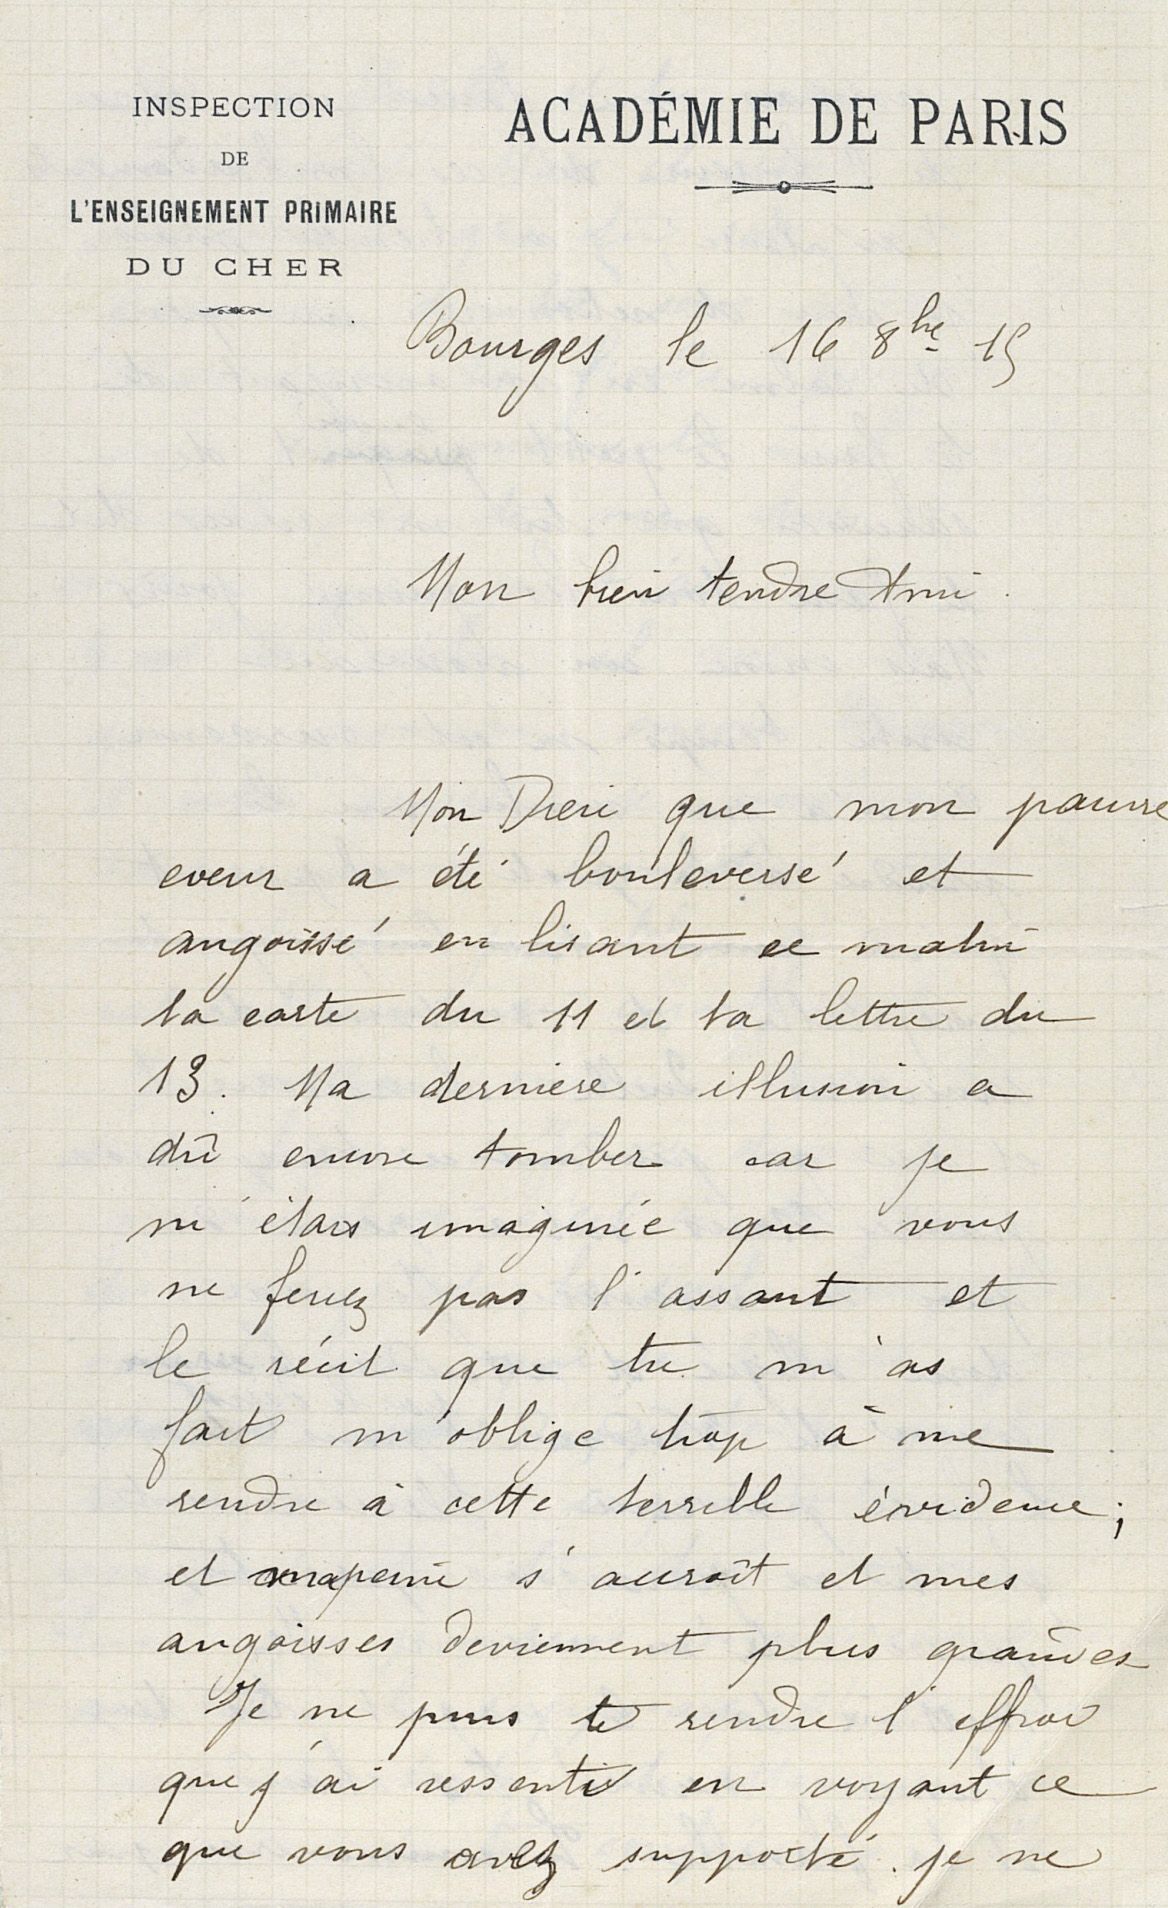 INSPECTION
DE
L'ENSEIGNEMENT PRIMAIRE
DU CHER
ACADÉMIE DE PARIS
Bourges le 16 8bre 15
Mon bien tendre Ami.
Mon Dieu que mon pauvre
coeur a été bouleversé et
angoissé en lisant ce matin
ta carte du 11 et ta lettre du
13. Ma derniere illusion a
dû encore tomber car je
m'étais imaginée que vous
ne feriez pas l'assaut et
le récit que tu m'as
fait m'oblige trop à me
rendre à cette terrible évidence;
et ma peine s'accroît et mes
angoisses deviennent plus grandes
Je ne puis te rendre l'effroi
que j'ai ressenti en voyant ce
que vous avez supporté. je ne